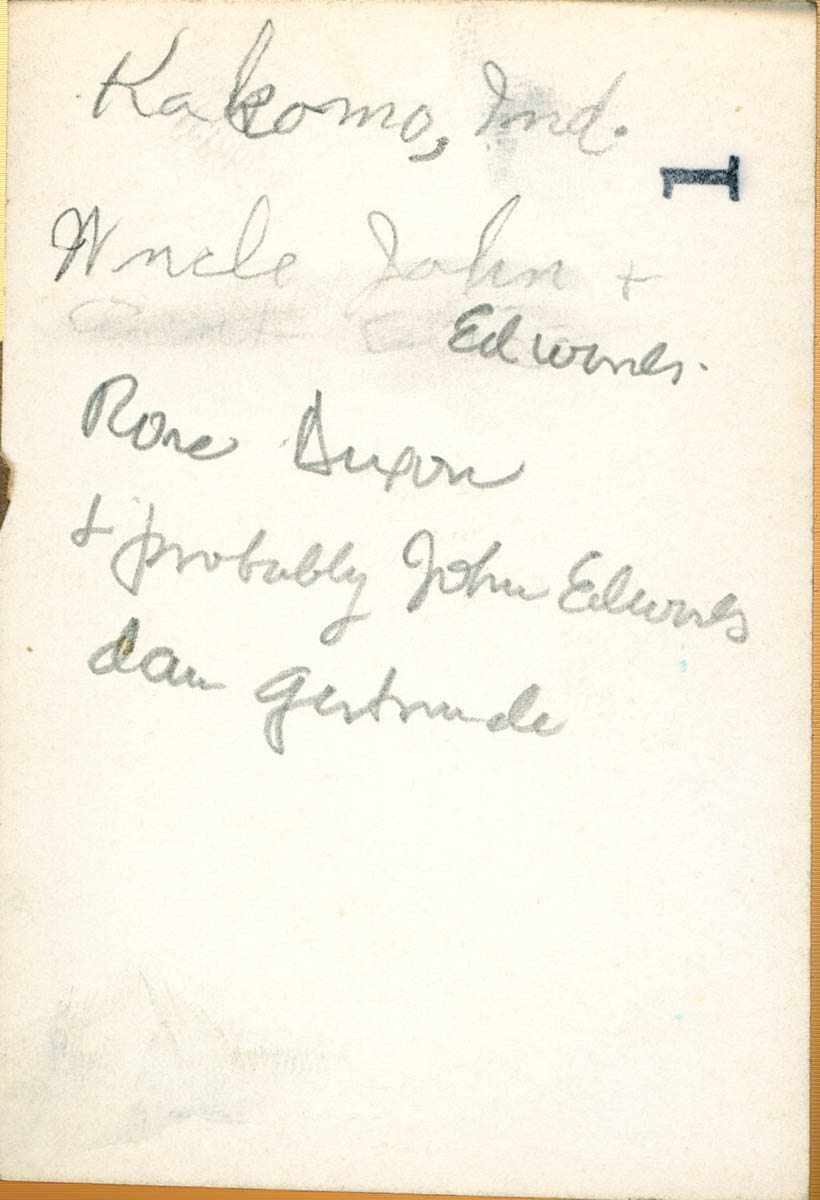 Kakomo, Ind.
1
Uncle John +
Edwards.
Rose Dixon
+ probably John Edwards
dau Gertrude